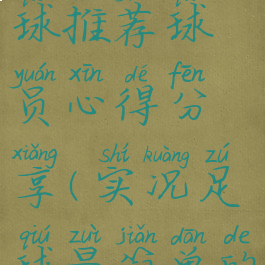 球推荐球
yuán xīn dé fēn
员心得分
xiǎng shí kuàng zú
享(实况足
qiú zuì jiǎn dān de
球最简单的